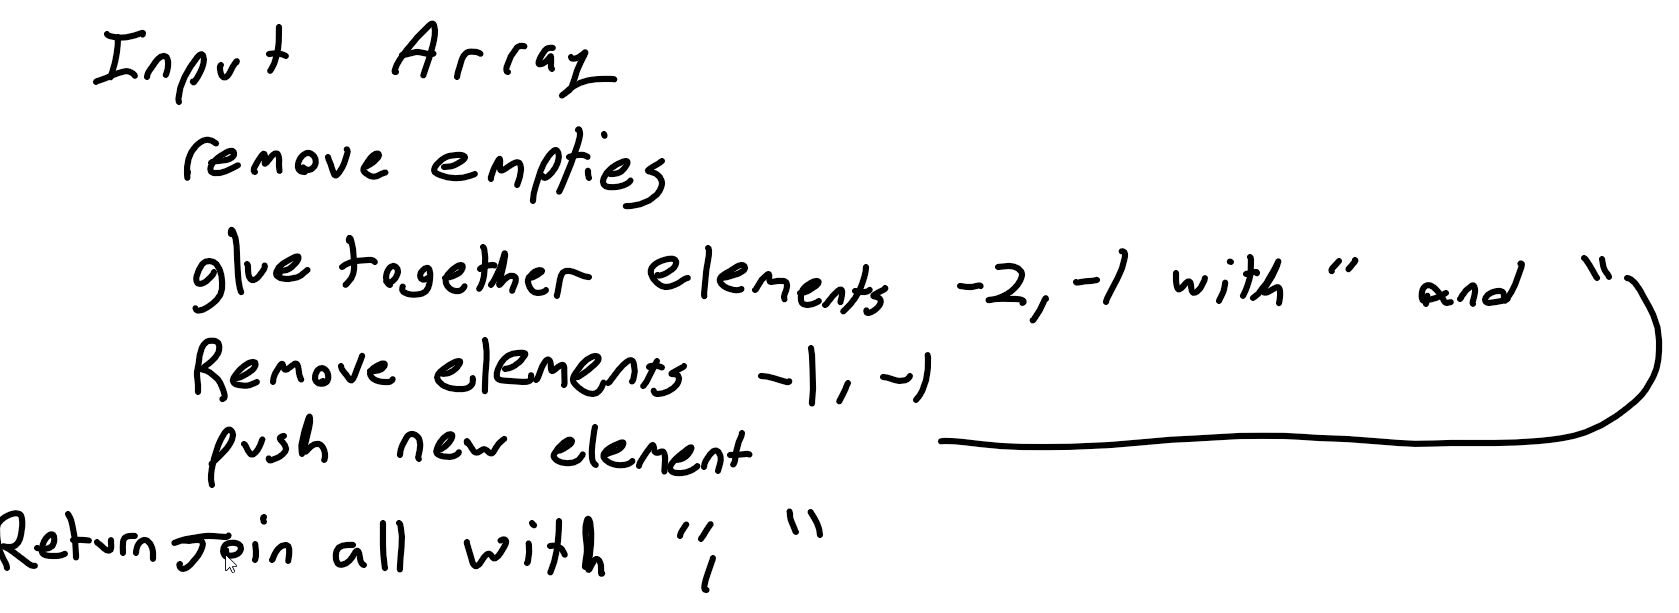 Input Array
remove empties
glue together elements -2, -1 with " and "
Remove elements -1, -1
push new element
Return Join all with ", "